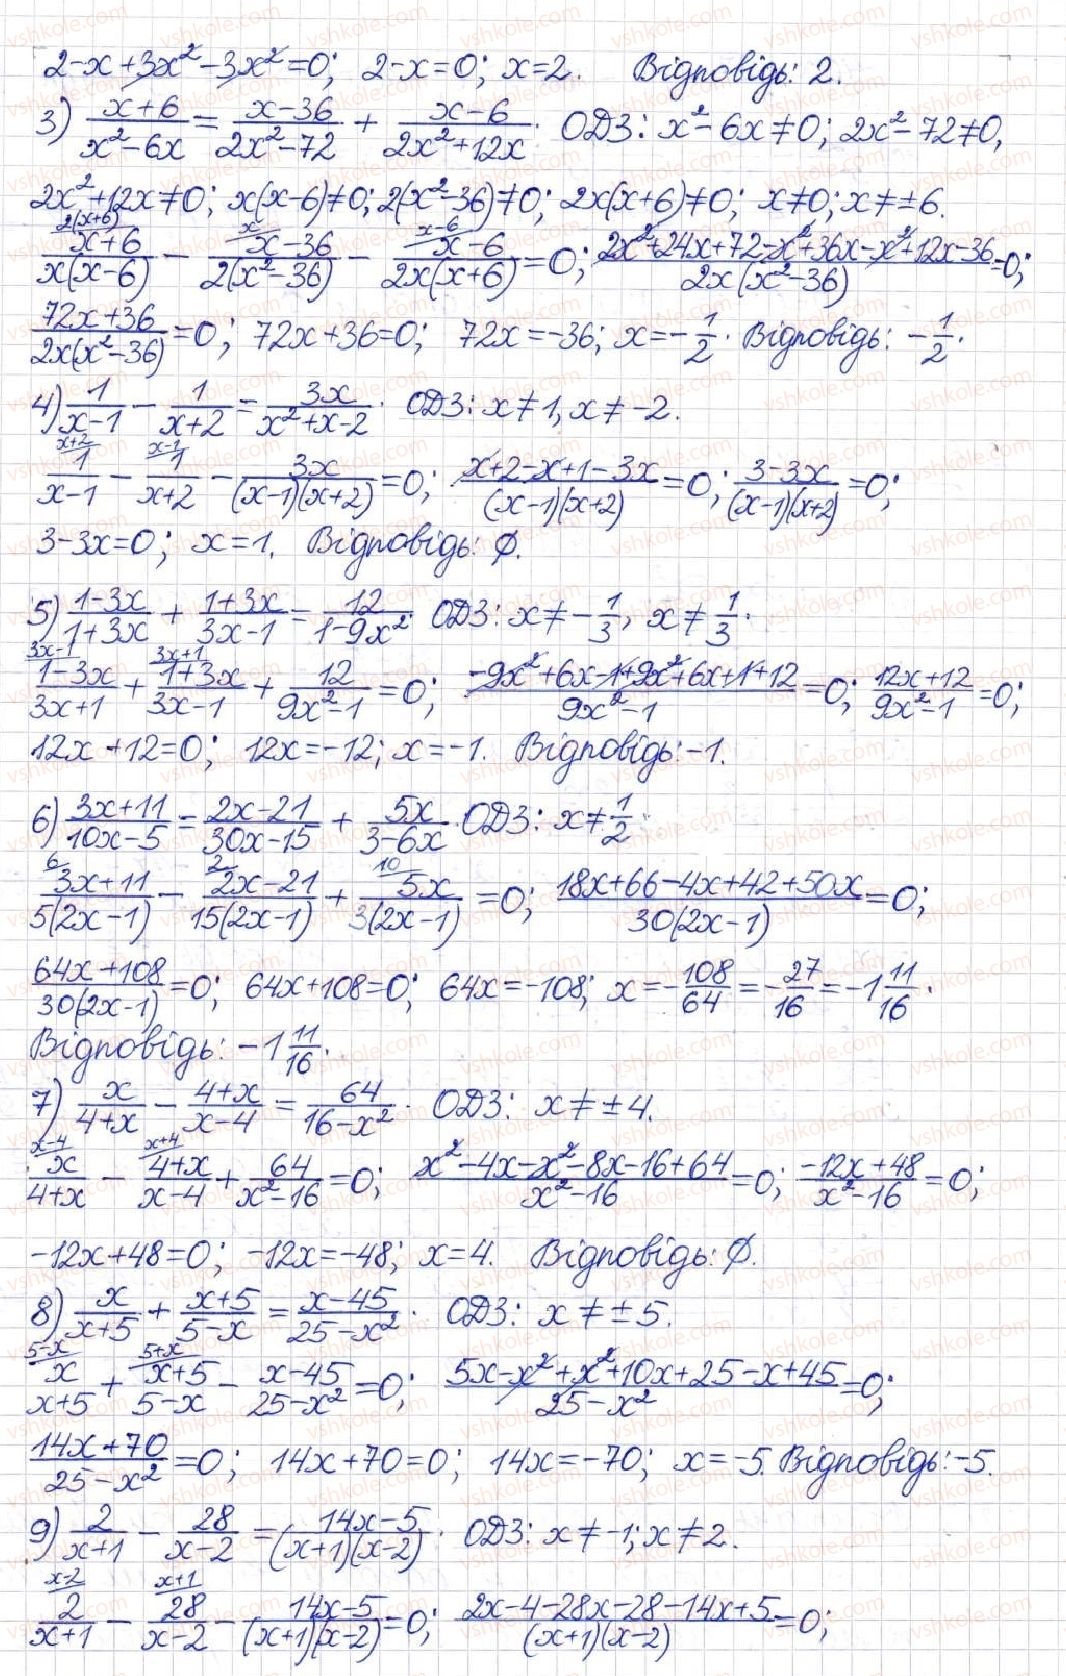 2-x+3x²-3x²=0; 2-x=0; x=2. Відповідь: 2.
3) (x+6)/(x²-6x) = (x-36)/(2x²-72) + (x-6)/(2x²+12x). ОДЗ: x²-6x≠0; 2x²-72≠0,
2x²+12x≠0; x(x-6)≠0; 2(x²-36)≠0; 2x(x+6)≠0; x≠0; x≠±6.
2(x+6) x x-6
(x+6)/(x(x-6)) - (x-36)/(2(x²-36)) - (x-6)/(2x(x+6)) = 0; (2x²+24x+72-x²+36x-x²+12x-36)/(2x(x²-36)) = 0;
(72x+36)/(2x(x²-36)) = 0; 72x+36=0; 72x=-36; x=-1/2. Відповідь: -1/2.
4) 1/(x-1) - 1/(x+2) = 3x/(x²+x-2). ОДЗ: x≠1, x≠-2.
x+2 x-1
1/(x-1) - 1/(x+2) - 3x/((x-1)(x+2)) = 0; (x+2-x+1-3x)/((x-1)(x+2)) = 0; (3-3x)/((x-1)(x+2)) = 0;
3-3x=0; x=1. Відповідь: ∅.
5) (1-3x)/(1+3x) + (1+3x)/(3x-1) = 12/(1-9x²). ОДЗ: x≠-1/3, x≠1/3.
3x-1 3x+1
(1-3x)/(3x+1) + (1+3x)/(3x-1) + 12/(9x²-1) = 0; (-9x²+6x-1+9x²+6x+1+12)/(9x²-1) = 0; (12x+12)/(9x²-1) = 0;
12x+12=0; 12x=-12; x=-1. Відповідь: -1.
6) (3x+11)/(10x-5) = (2x-21)/(30x-15) + 5x/(3-6x). ОДЗ: x≠1/2.
6 2 10
(3x+11)/(5(2x-1)) - (2x-21)/(15(2x-1)) + 5x/(3(2x-1)) = 0; (18x+66-4x+42+50x)/(30(2x-1)) = 0;
(64x+108)/(30(2x-1)) = 0; 64x+108=0; 64x=-108; x=-108/64=-27/16=-1 11/16.
Відповідь: -1 11/16.
7) x/(4+x) - (4+x)/(x-4) = 64/(16-x²). ОДЗ: x≠±4.
x-4 x+4
x/(4+x) - (4+x)/(x-4) + 64/(x²-16) = 0; (x²-4x-x²-8x-16+64)/(x²-16) = 0; (-12x+48)/(x²-16) = 0;
-12x+48=0; -12x=-48; x=4. Відповідь: ∅.
8) x/(x+5) + (x+5)/(5-x) = (x-45)/(25-x²). ОДЗ: x≠±5.
5-x 5+x
x/(x+5) + (x+5)/(5-x) - (x-45)/(25-x²) = 0; (5x-x²+x²+10x+25-x+45)/(25-x²) = 0;
(14x+70)/(25-x²) = 0; 14x+70=0; 14x=-70; x=-5. Відповідь: -5.
9) 2/(x+1) - 28/(x-2) = (14x-5)/((x+1)(x-2)). ОДЗ: x≠-1; x≠2.
x-2 x+1
2/(x+1) - 28/(x-2) - (14x-5)/((x+1)(x-2)) = 0; (2x-4-28x-28-14x+5)/((x+1)(x-2)) = 0;